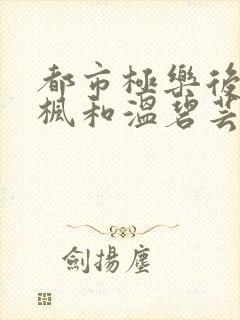 都市極樂後
楓和溫碧芸
劍揚塵